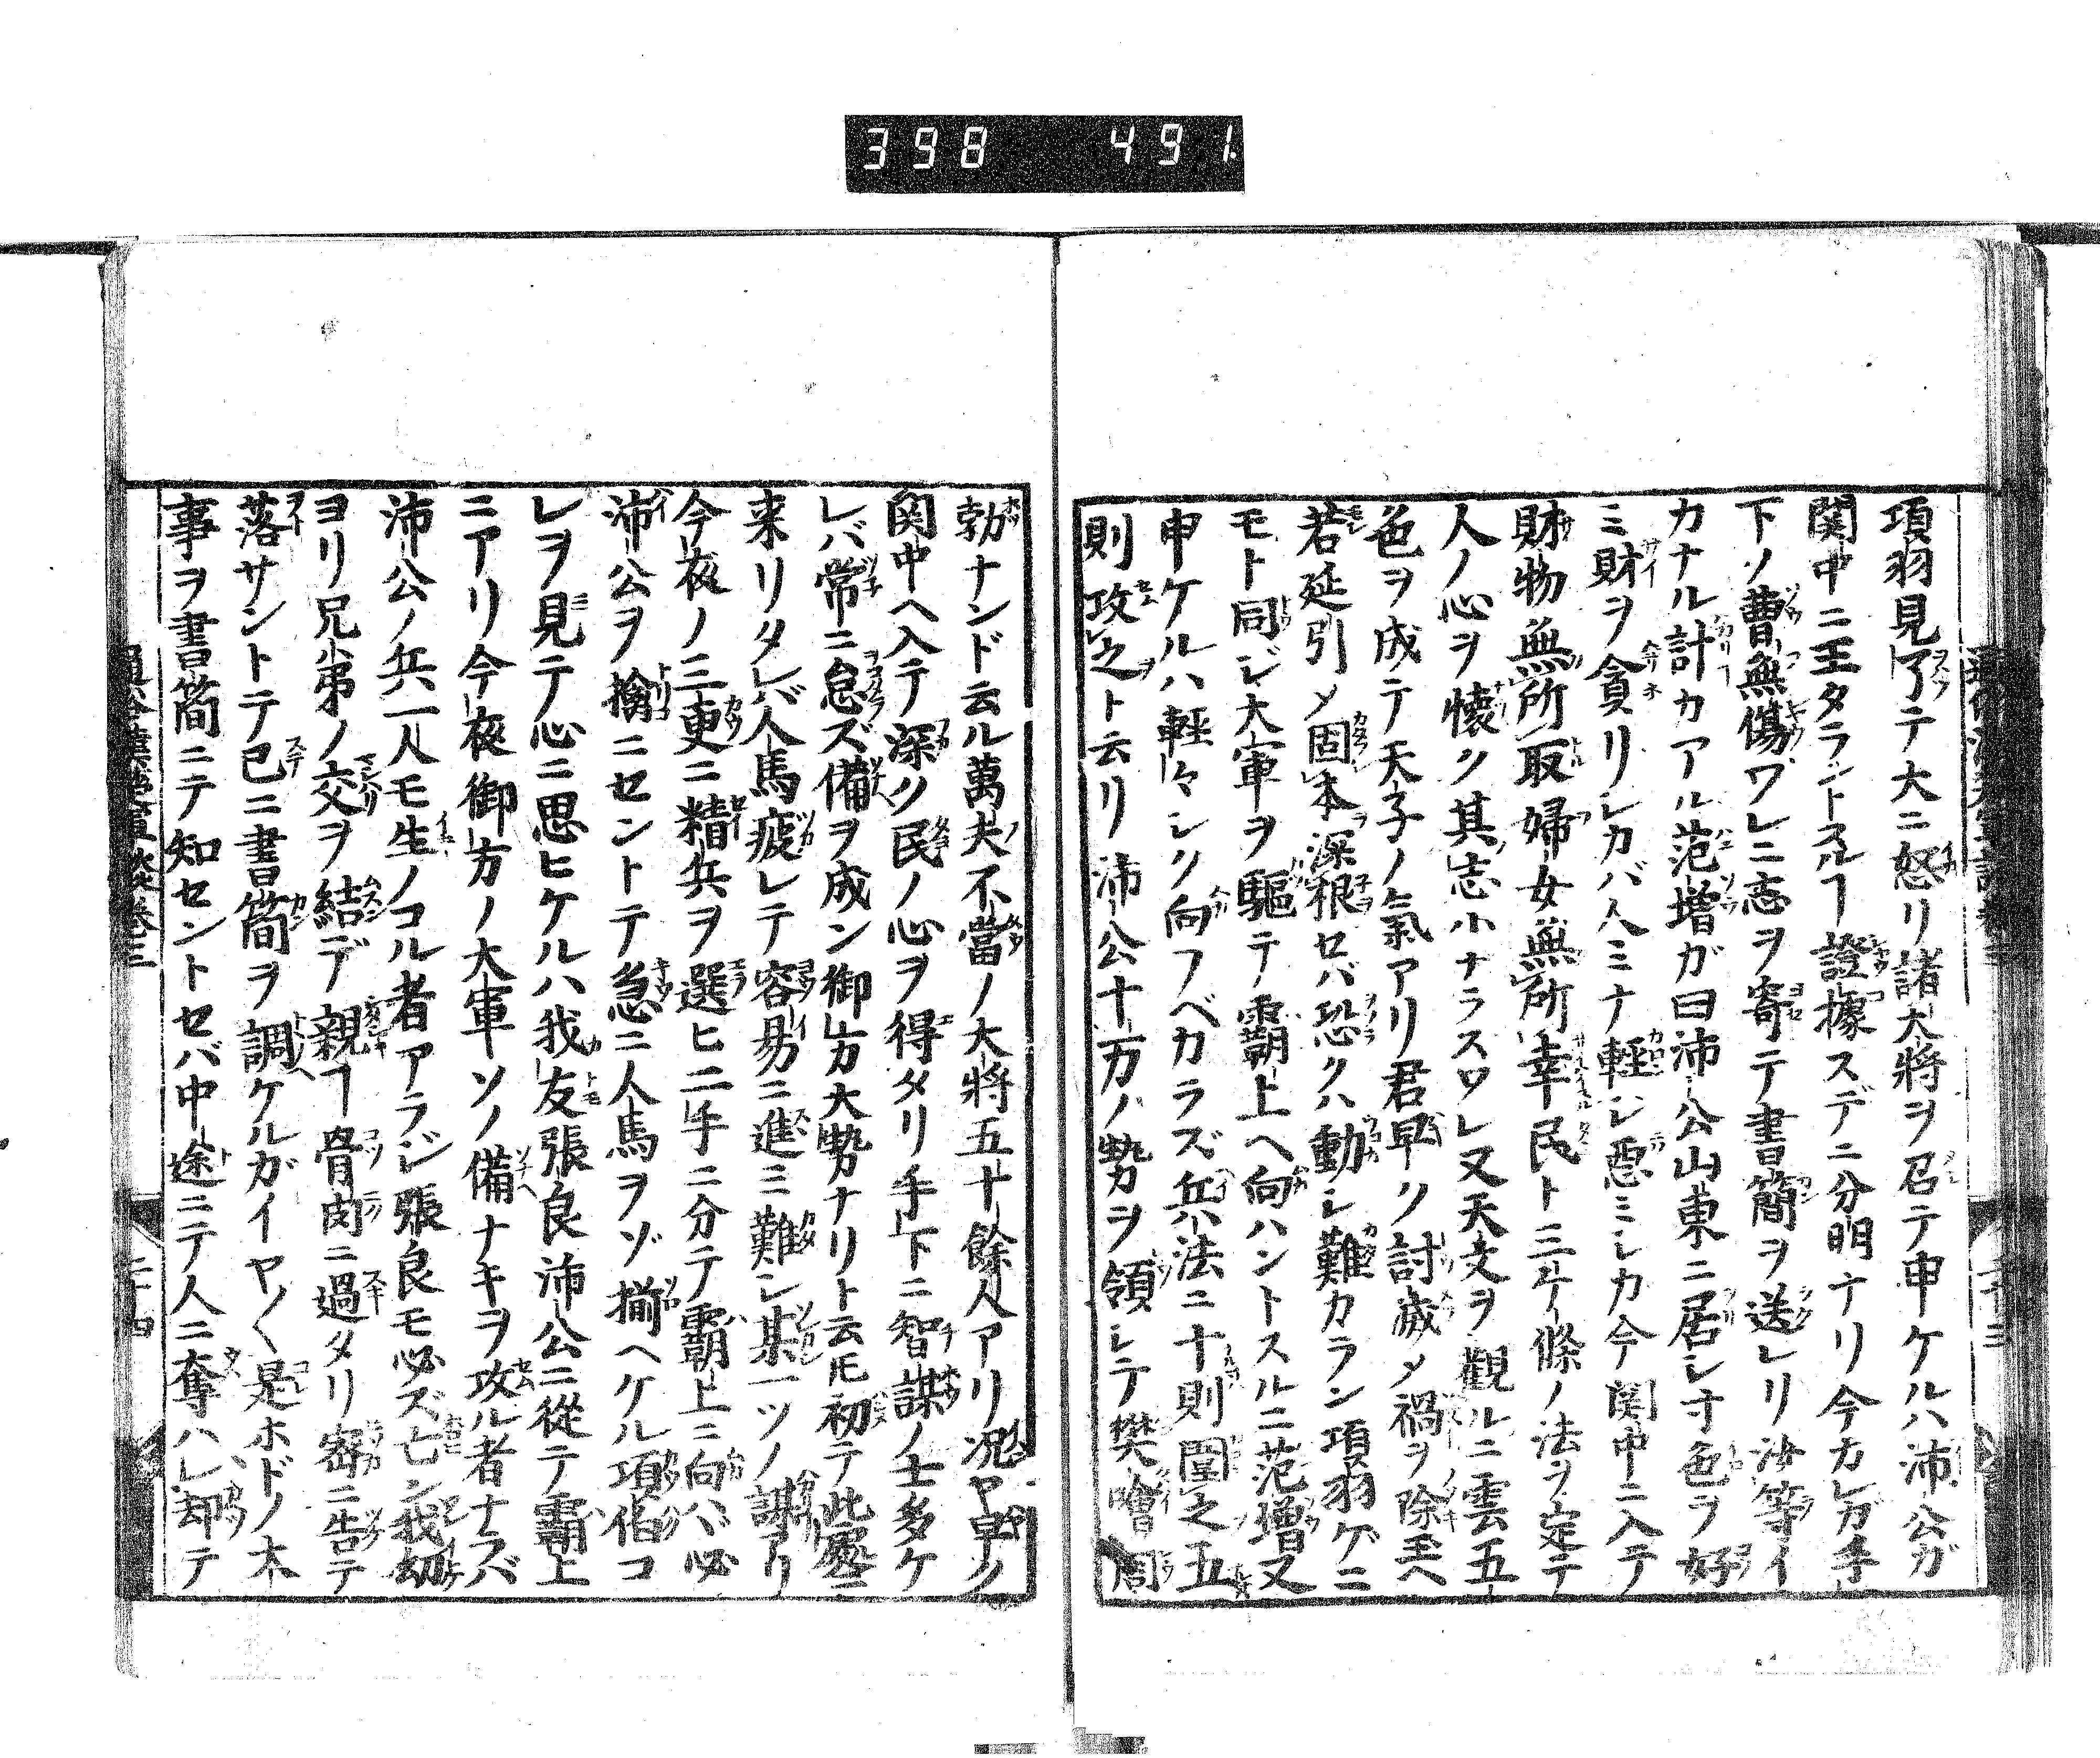 398 491
項羽見了テ大ニ怒リ諸大將ヲ召テ申ケルハ沛公ガ
関中ニ王タラントスルヿ證據スデニ分明ナリ今カレガ手
下ノ曹無傷ワレニ志ヲ寄テ書簡ヲ送レリ汝等イ
カナル計カアル范増ガ曰沛公山東ニ居シ寸色ヲ好
ミ財ヲ貪リシカバ人ミナ軽シ惡ミシカ今関中ニ入テ
財物無所取婦女無所幸民ト三ケ條ノ法ヲ定テ
人ノ心ヲ懐ク其志小ナラスワレ又天文ヲ觀ルニ雲五
色ヲ成テ天子ノ氣アリ君早ク討滅メ禍ヲ除玉ヘ
若延引メ固本深根セバ恐クハ動シ難カラン項羽ゲニ
モト同ジ大軍ヲ驅テ霸上ヘ向ハントスルニ范増又
申ケルハ軽々シク向フベカラズ兵法ニ十則圍之五
則攻之ト云リ沛公十万ノ勢ヲ領シテ樊噲周
勃ナンド云ル萬夫不當ノ大將五十餘人アリ况ヤ卓ノ
関中ヘ入テ深ク民ノ心ヲ得タリ手下ニ智謀ノ士多ケ
レバ常ニ怠ズ備ヲ成ン御方大勢ナリト云𪜈初テ此處ニ
来リタレバ人馬疲レテ容易ニ進ミ難シ某一ツノ謀アリ
今夜ノ三更ニ精兵ヲ選ヒ二手ニ分テ霸上ニ向ハバ必
沛公ヲ擒ニセントテ急ニ人馬ヲゾ揃ヘケル項伯コ
レヲ見テ心ニ思ヒケルハ我友張良沛公ニ從テ霸上
ニアリ今夜御方ノ大軍ソノ備ナキヲ攻ル者ナラバ
沛公ノ兵一人モ生ノコル者アラジ張良モ必ズ亡ン我幼
ヨリ兄弟ノ交ヲ結デ親ヿ骨肉ニ過タリ密ニ告テ
落サントテ已ニ書簡ヲ調ケルガイヤ〱是ホドノ大
事ヲ書簡ニテ知セントセバ中途ニテ人ニ奪ハレ却テ
二十四